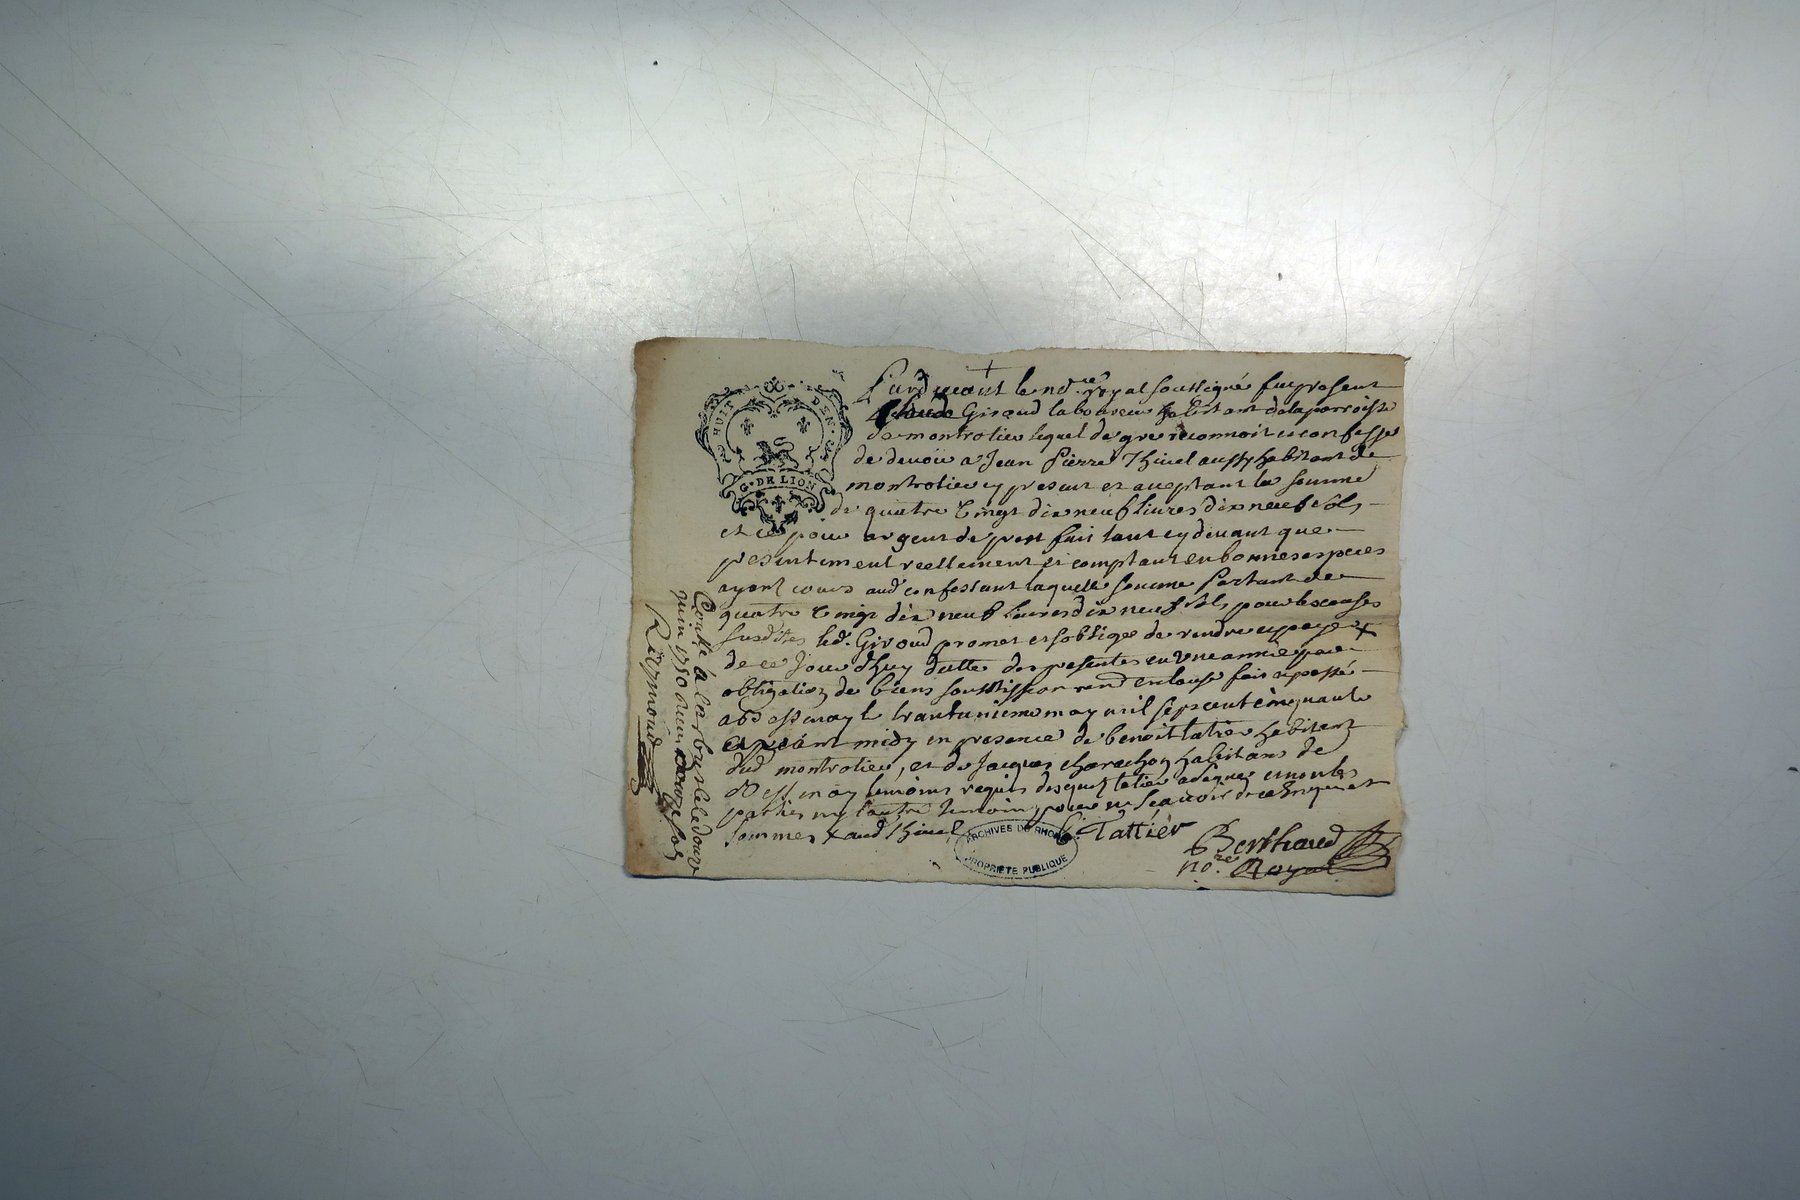 HUIT DEN.
G. DE LION
Pardevant le no.re royal soussigné fut present
Claude Giroud laboureur habitant de la parroisse
de montrotier lequel de gre reconnoit et confesse
de devoir a Jean Pierre Thivel aussy habitant de
montrotier cy present et acceptant la somme
de quatre vingt dix neuf livres dix neuf sols
et ce pour argent de prest fait tant cy devant que
presentement reellement et comptant en bonnes especes
ayant cours aud confessant laquelle somme portant de
quatre vingt dix neuf livres dix neuf sols pour les causes
susdites led. Giroud promet et s'oblige de rendre et payer +
de ce Jour d'huy datte des presentes en une année par
obligation de biens soumission rend et clause fait et passé
a Bessenay le trantunieme may mil sept cent cinquante
avant midy en presence de benoit tatier habitant
dud montrotier, et de Jacques charachon habitant de
Bessenay temoins requis desquels tatier a signé et non les
parties ny l'autre temoin pour ne sçavoir de ce enquis et
sommes + aud Thivel
B. Tattier
Berthaud
no.re Royal
ARCHIVES DU RHONE
PROPRIÉTÉ PUBLIQUE
Controllé a l'arbresle le douze
juin 1750 recu douze sols
Reymond